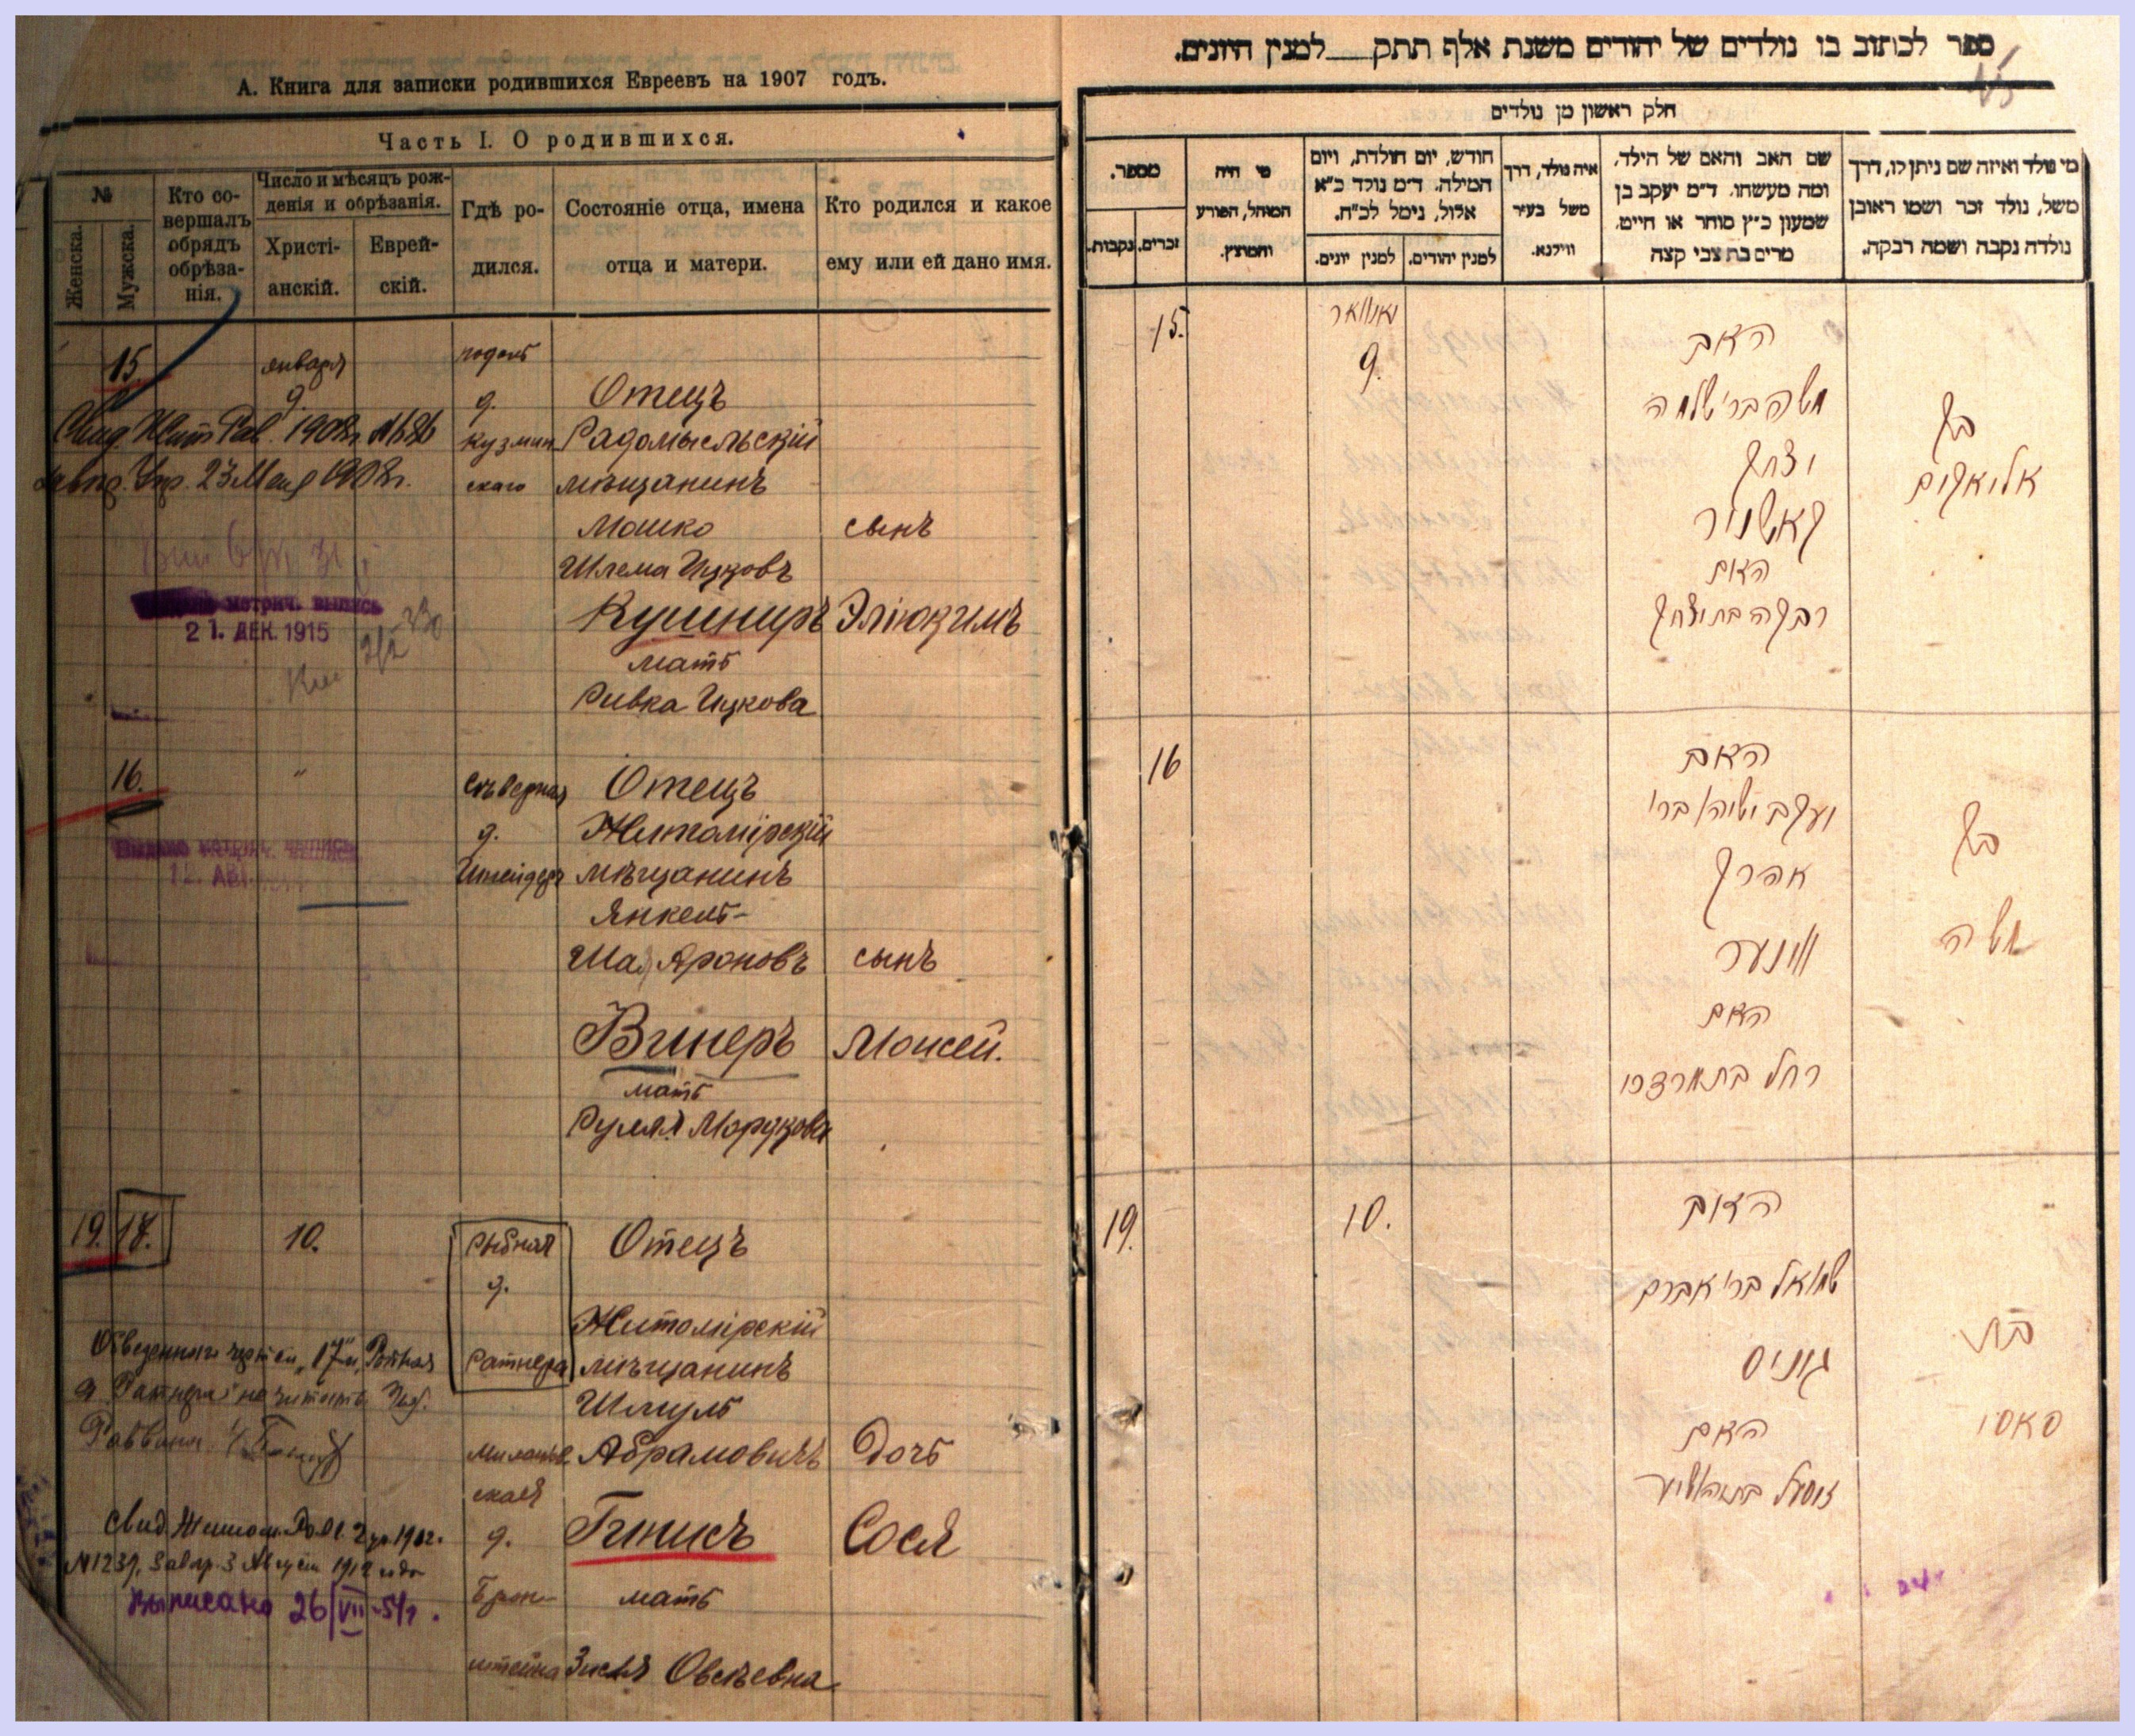 А. Книга для записки родившихся Евреевъ на 1907 годъ.
Часть I. О родившихся.
№
Женска.
Мужска.
Кто со-
вершалъ
обрядъ
обрѣза-
нія.
Число и мѣсяцъ рож-
денія и обрѣзанія.
Христі-
анскій.
Еврей-
скій.
Гдѣ ро-
дился.
Состояніе отца, имена
отца и матери.
Кто родился и какое
ему или ей дано имя.
15
января
9.
д.
Кузмин
скаго
Отецъ
Радомысльскій
мѣщанинъ
Мошко
Шлема Ицковъ
Кушниръ
мать
Ривка Ицкова
сынъ
Эліокимъ
1908г. №86
23 Мая 1908г.
метрич. выпись
21. ДЕК. 1915
16.
"
Сѣверная
д.
Отецъ
Житомірскій
мѣщанинъ
Янкель-
Шая Ароновъ
Винеръ
мать
Рухля Мордкова
сынъ
Моисей.
12. АВГ.
19. 17.
10.
Рыбная
д.
Ратнера
Отецъ
Житомірскій
мѣщанинъ
Шмуль
Абрамовичъ
Гинисъ
мать
Зисля Овсѣевна
дочь
Сося
ская
д.
Брон-
штейна
Обведенного чертой „17“, „Рыбная
д. Ратнера“ не читать.
Раввина
№1237, 3 Августа 1912 года
Выписано 26/VII-51г.
ספר לכתוב בו נולדים של יהודים משנת אלף תתק__למנין היונים.
15
חלק ראשון מן נולדים
מספר.
נקבות.
זכרים.
מי היה
המוהל, הפורע
והמוצץ.
חודש, יום הולדת, ויום
המילה. ד"מ נולד כ"א
אלול, נימל לכ"ח.
למנין יונים.
למנין יהודים.
איה נולד, דרך
משל בעיר
ווילנא.
שם האב והאם של הילד,
ומה מעשהו. ד"מ יעקב בן
שמעון כ"ץ סוחר או חייט,
מרים בת צבי קצה
מי נולד ואיזה שם ניתן לו, דרך
משל, נולד זכר ושמו ראובן
נולדה נקבה ושמה רבקה.
15.
יאנואר
9.
האב
משה ברי שלמה
יצחק
קאשניר
האם
רבקה בת יצחק
בן
אליאקים
16
האב
יעקב ישיה ברי
אהרן
ווינער
האם
רחל בת מרדכי
בן
משה
19.
10.
האב
שמואל ברי אברם
גוניס
האם
זיסעל בת יהושיע
בת
סאסי